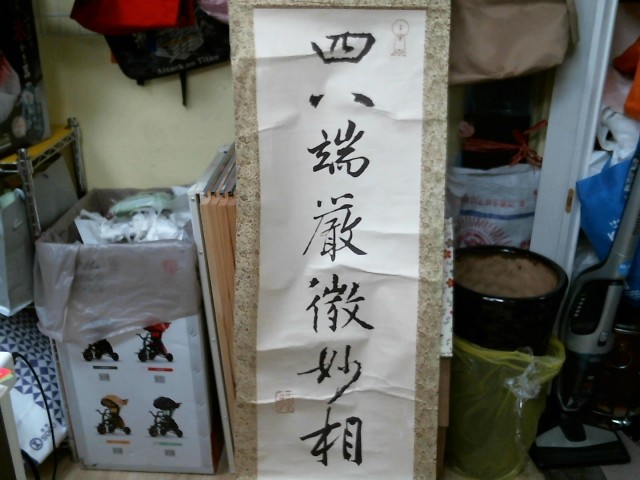 四八端嚴微妙相